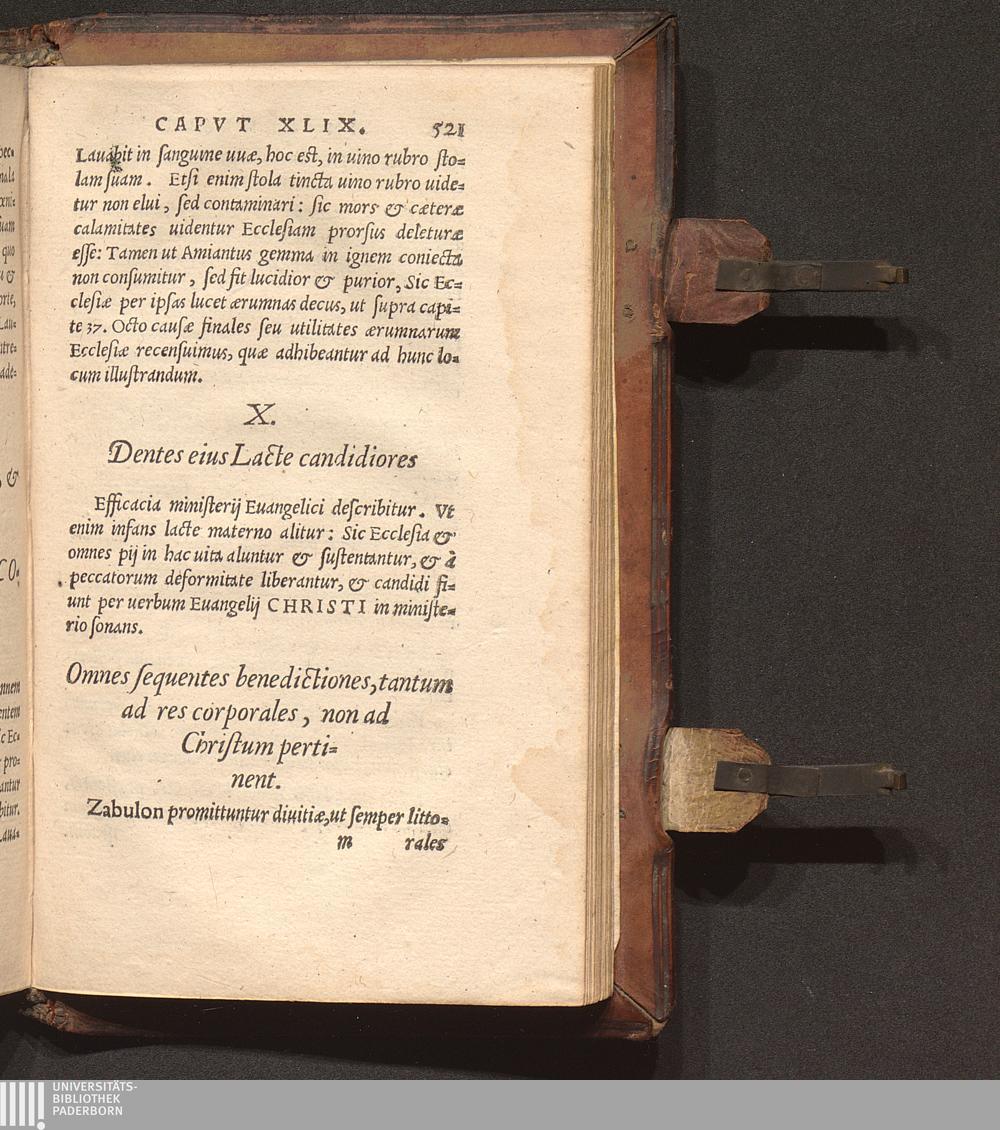 CAPVT XLIX. 521
Lauabit in sanguine uuæ, hoc est, in uino rubro sto=
lam suam. Etsi enim stola tincta uino rubro uide=
tur non elui, sed contaminari: sic mors & cæteræ
calamitates uidentur Ecclesiam prorsus deleturæ
esse: Tamen ut Amiantus gemma in ignem coniecta
non consumitur, sed fit lucidior & purior, Sic Ec=
clesiæ per ipsas lucet ærumnas decus, ut supra capi=
te 37. Octo causæ finales seu utilitates ærumnarum
Ecclesiæ recensuimus, quæ adhibeantur ad hunc lo=
cum illustrandum.
X.
Dentes eius Lacte candidiores
Efficacia ministerij Euangelici describitur. Vt
enim infans lacte materno alitur: Sic Ecclesia &
omnes pij in hac uita aluntur & sustentantur, & à
peccatorum deformitate liberantur, & candidi fi=
unt per uerbum Euangelij CHRISTI in ministe=
rio sonans.
Omnes sequentes benedictiones, tantum
ad res corporales, non ad
Christum perti=
nent.
Zabulon promittuntur diuitiæ, ut semper litto=
m rales
UNIVERSITÄTS-
BIBLIOTHEK
PADERBORN